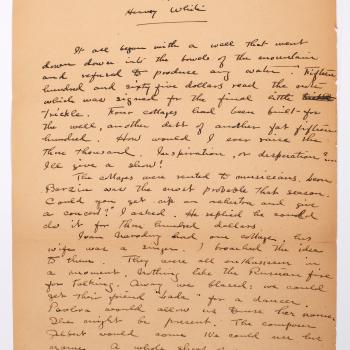 Hervey White
It all began with a well that went
down down into the bowels of the mountain
and refused to produce any water. Fifteen
hundred and sixty five dollars read the
which was signed for the final little
trickle. Four cottages had been built for
the well, another debt of another fat fifteen
hundred. How would I ever raise the
three thousand. Inspiration, or desperation?
I'll give a show!
The cottages were rented to musicians. Leon
Barzin was the most probable that season.
Could you get up an orchestra and give
a concert?" I asked. He replied he could
do it for three hundred dollars
Ivan Narodny had one cottage, his
wife was a singer. I broached the idea
to them. They were all enthusiasm in
a moment. Nothing like the Russian fire
for talking. Away we blazed: we could
get their friend for a dancer.
Pavlova would allow us to use her name.
She might be present. The composer
Albert would come. We could use his
name. A whole